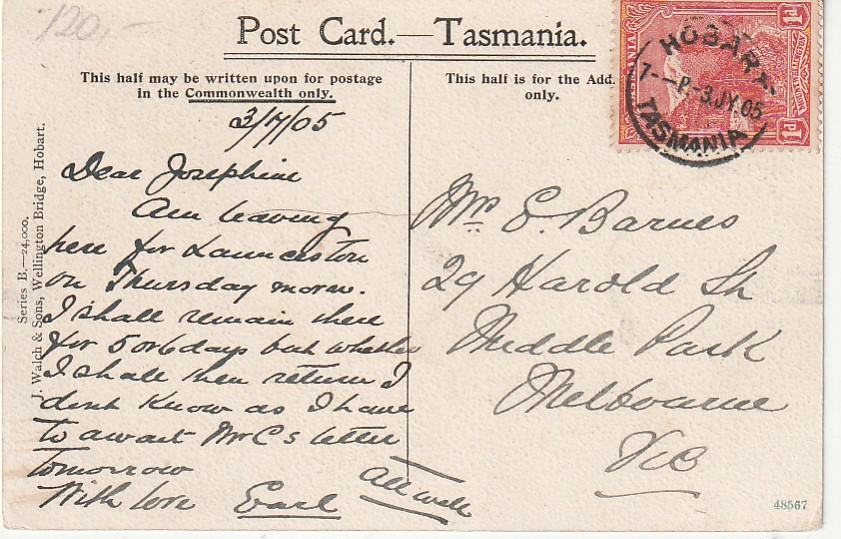 120,-
Post Card.—Tasmania.
This half may be written upon for postage
in the Commonwealth only.
This half is for the Add.
only.
TASMANIA
1d
1d
HOBART
7--P-3.JY.05
TASMANIA
3/7/05
Dear Josephine
Am leaving
here for Launceston
on Thursday morn.
I shall remain there
for 5 or 6 days but whether
I shall then return I
dont know as I have
to await Mr C s letter
tomorrow
With love Earl
All well
Mrs E. Barnes
29 Harold St
Middle Park
Melbourne
Vic
Series B.—24,000.
J. Walch & Sons, Wellington Bridge, Hobart.
48567